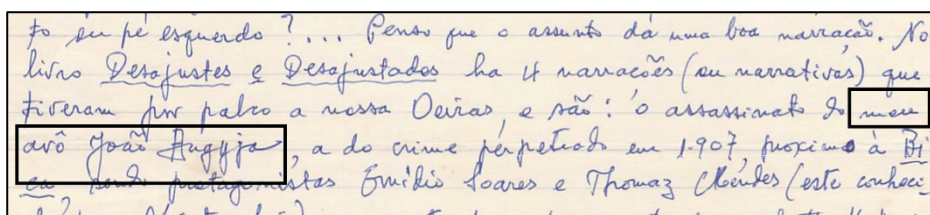 to seu pé esquerdo?... Penso que o assunto dá uma boa narração. No
livro Desajustes e Desajustados ha 4 narrações (ou narrativas) que
tiveram por palco a nossa Oeiras, e são: o assassinato do meu
avô João, a do crime perpetrado em 1.907, proximo à
sendo protagonistas Emidio Soares e Thomaz Mendes (este conheci-